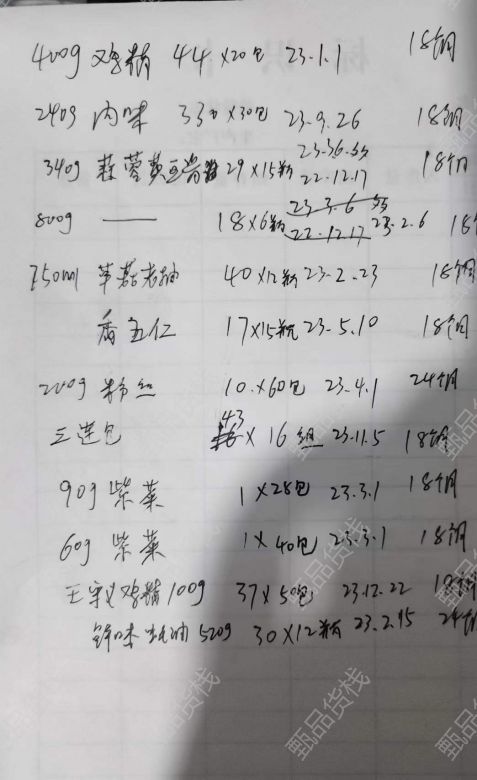 400g 鸡精 44×20包 23.1.1 18个月
240g 肉味 33×30包 23.9.26 18个月
340g 蒜蓉黄豆酱 29×15瓶 22.12.17 18个月
800g —— 18×6瓶 23.3.6 22.12.17 23.2.6 18个
750ml 草菇老抽 40×12瓶 23.2.23 18个月
香五仁 17×15瓶 23.5.10 18个月
200g 粉丝 10×60包 23.4.1 24个月
三连包 43×16组 23.11.5 18个月
90g 紫菜 1×28包 23.3.1 18个月
60g 紫菜 1×40包 23.3.1 18个月
王守义鸡精100g 37×50包 23.12.22 18个月
鲜味蚝油520g 30×12瓶 23.2.15 24个
甄品货栈